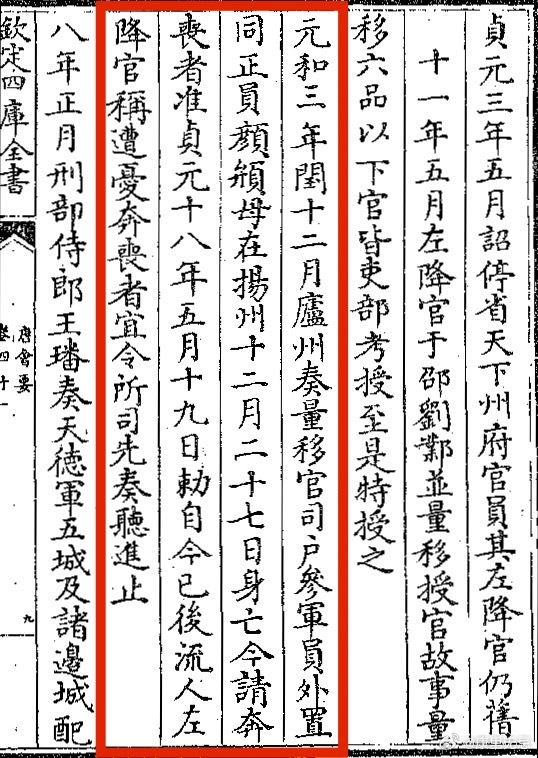 貞元三年五月詔停省天下州府官員其左降官仍舊
十一年五月左降官于邵劉鄴並量移授官故事量
移六品以下官皆吏部考授至是特授之
元和三年閏十二月廬州奏量移官司戶參軍員外置
同正員顏母在揚州十二月二十七日身亡今請奔
喪者准貞元十八年五月十九日勅自今已後流人左
降官稱遭憂奔喪者宜令所司先奏聽進止
八年正月刑部侍郎王璠奏天德軍五城及諸邊城配
欽定四庫全書
唐會要
卷四十一
九